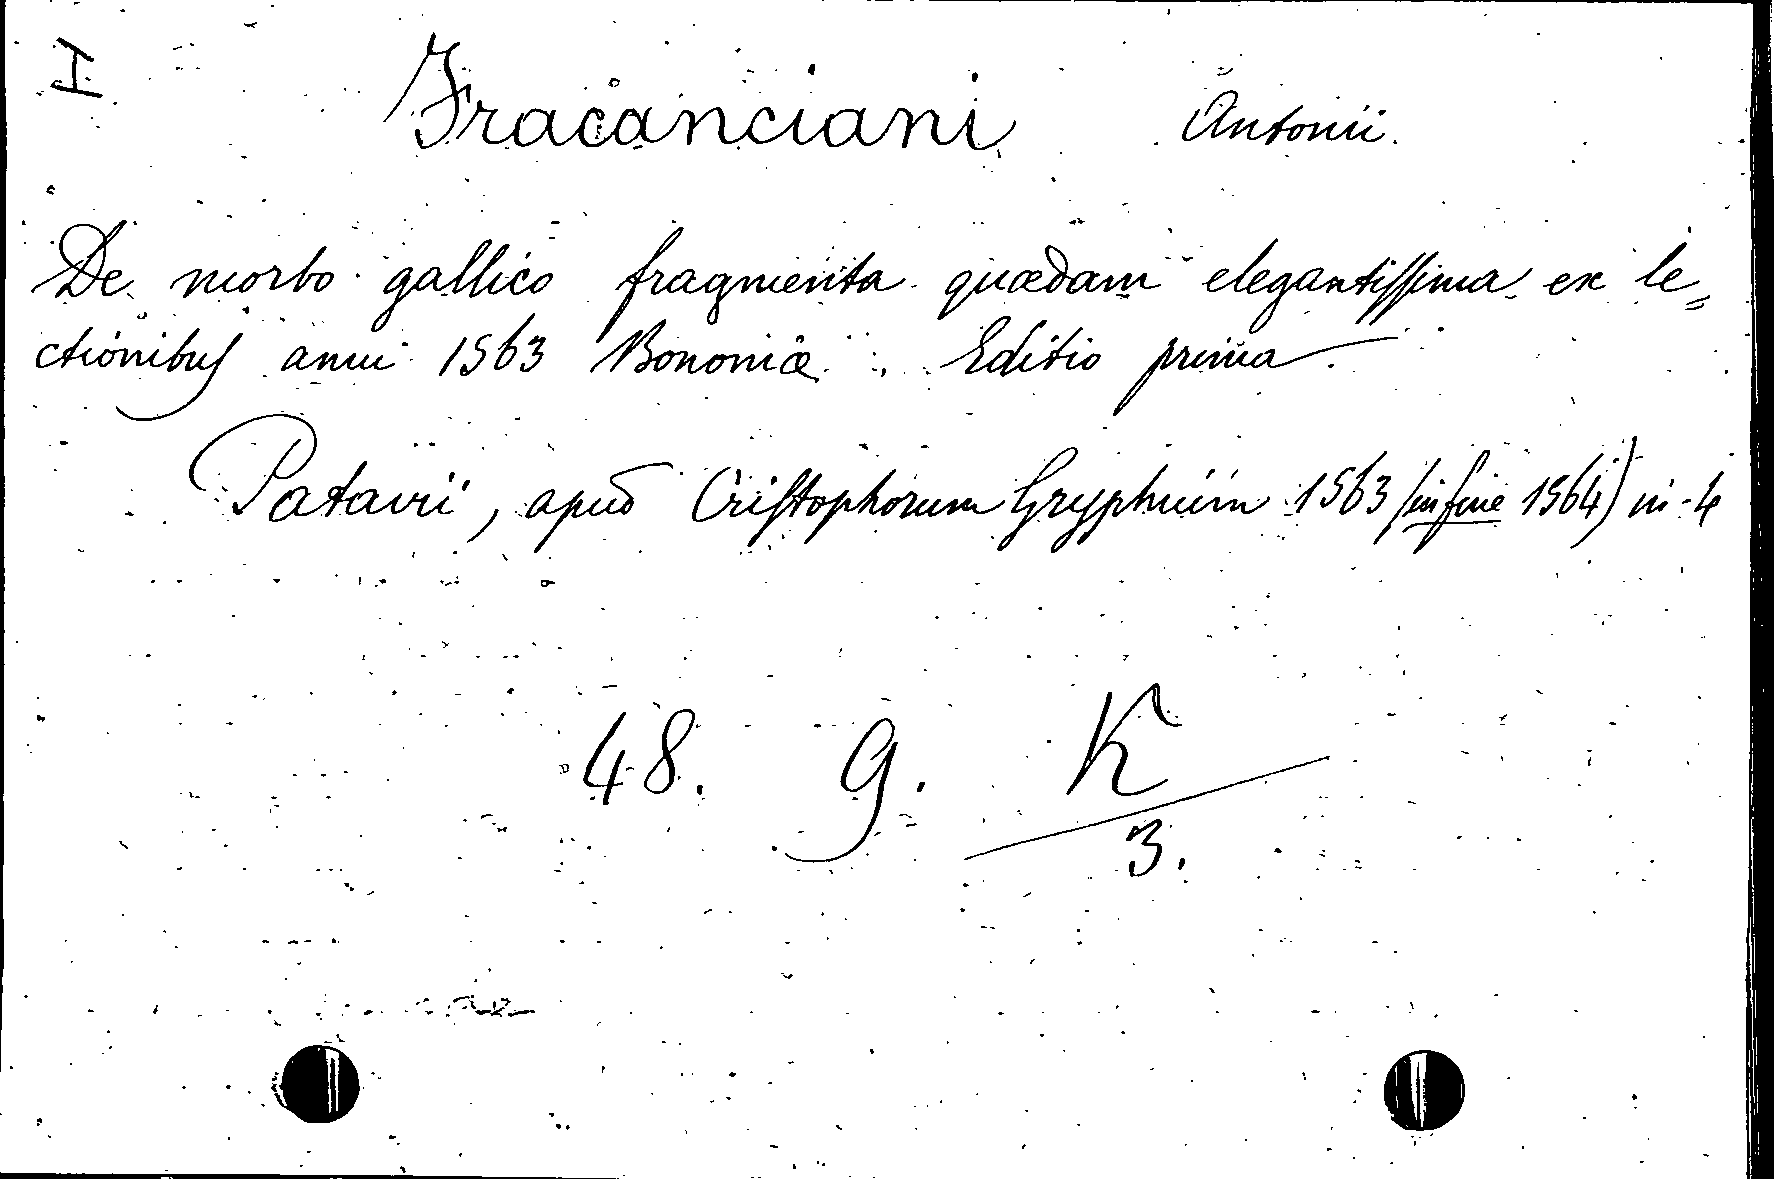 I
Fracanciani Antonii.
De morbo gallico fragmenta quædam elegantissima ex le=
ctionibus anni 1563 Bononiæ. Editio prima.
Patavii, apud Cristophorum Gryphium 1563 (in fine 1564) in-4
48. 9. K
3.